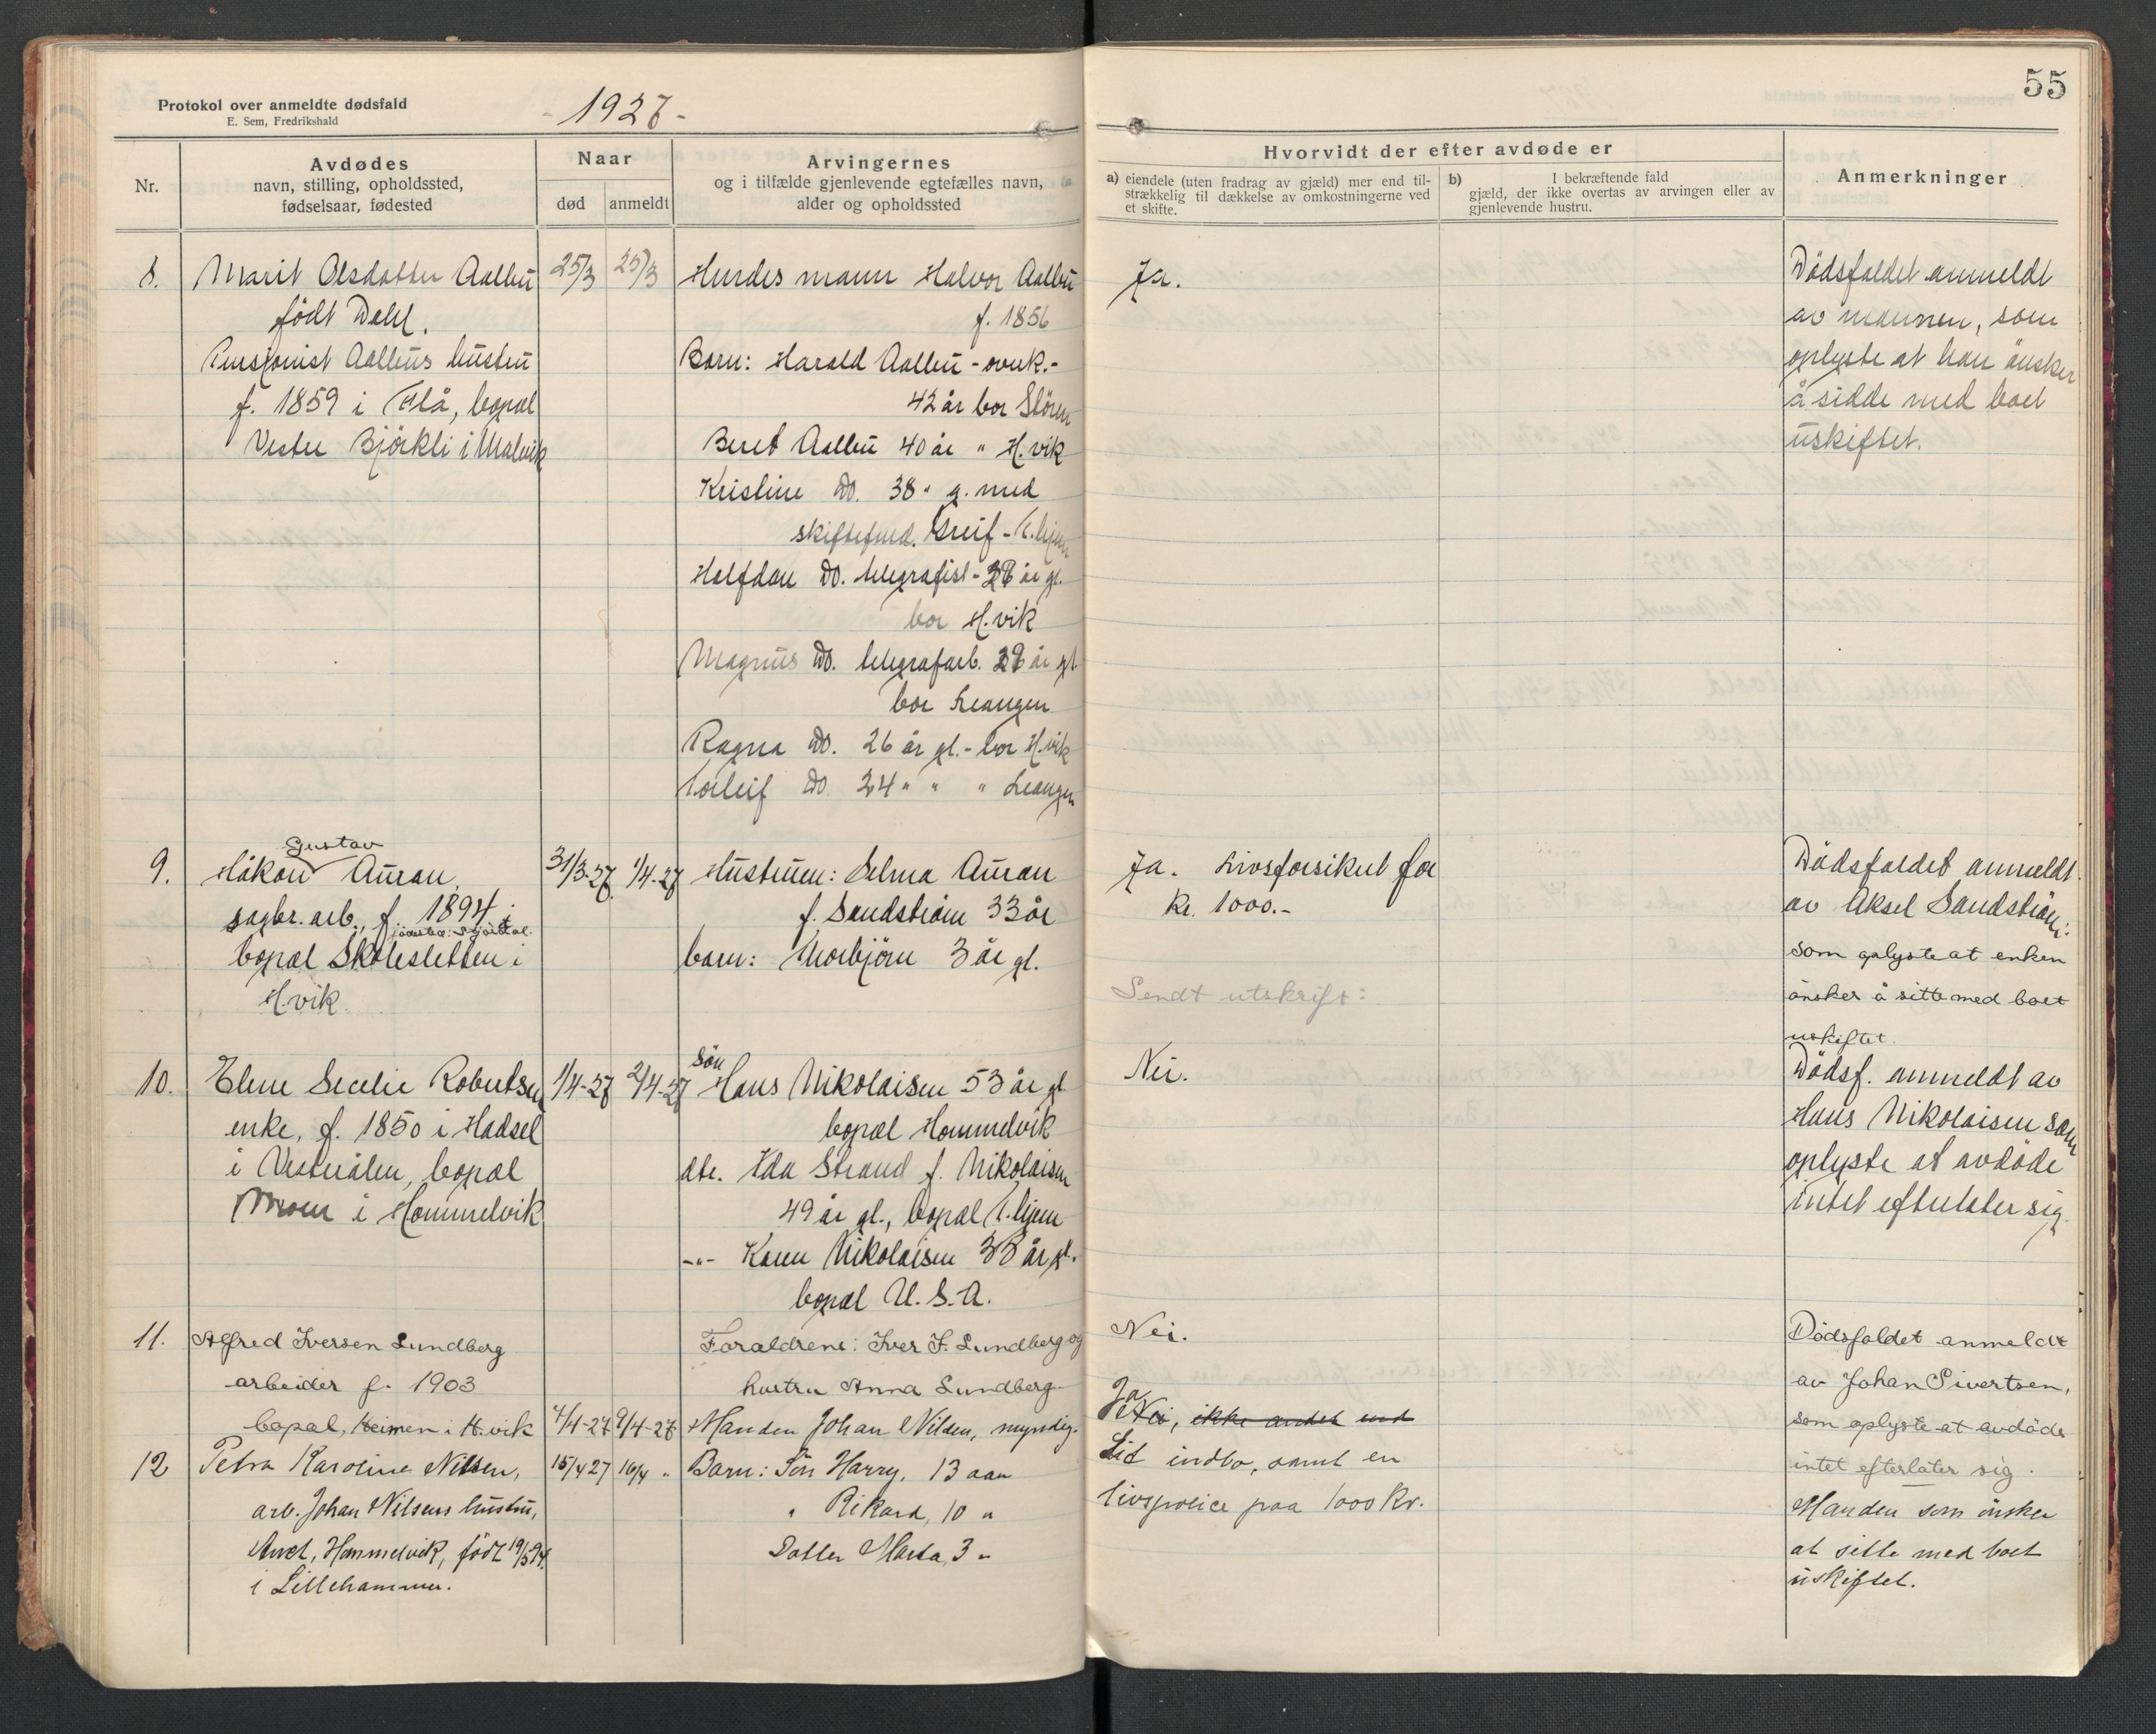 Protokol over anmeldte dødsfald
E. Sem, Fredrikshald
- 1927 -
55
Nr.
Avdødes
navn, stilling, opholdssted,
fødselsaar, fødested
Naar
død
anmeldt
Arvingernes
og i tilfælde gjenlevende egtefælles navn,
alder og opholdssted
Hvorvidt der efter avdøde er
a) eiendele (uten fradrag av gjæld) mer end til-
strækkelig til dækkelse av omkostningerne ved
et skifte.
b) I bekræftende fald
gjæld, der ikke overtas av arvingen eller av
gjenlevende hustru.
Anmerkninger
8.
Marit Olsdatter Aalbu
født Dahl.
Pensjonist Aalbus hustru
f. 1859 i Flå, bopæl
Vestre Björkli i Malvik
25/3
25/3
Hendes mann Halvor Aalbu
f. 1856
Barn: Harald Aalbu - ovnk.-
42 år bor Stören
Beret Aalbu 40 år " H.vik
Kristine do. 38 " g. med
skiftefuld. Greif - T.hjem
Halfdan do. telegrafist - 28 år gl.
bor H.vik
Magnus do. telegrafarb. 28 år gl.
bor Leangen
Ragna do. 26 år gl. - bor H.vik
Torleif do. 24 " " " Leangen
Ja.
Dödsfaldet anmeldt
av mannen, som
oplyste at han önsker
å sidde med boet
uskiftet.
9.
Gustav
Håkon Auran,
sagbr. arb., f. 1894.
bopæl Skolesletten i
H.vik
31/3-27
1/4-27
Hustruen: Selma Auran
f. Sandström 33 år
barn: Thorbjörn 3 år gl.
Ja. Livsforsikret for
Kr. 1000.-
Sendt utskrift:
Dödsfaldet anmeldt
av Aksel Sandström:
som oplyste at enken
önsker å sitte med boet
uskiftet.
10.
Elene Secelie Robertsen
enke, f. 1850 i Hadsel
i Vesterålen, bopæl
Moen i Hommelvik
1/4-27
2/4-27
Sön
Hans Nikolaisen 53 år gl.
bopæl Hommelvik
dtr. Ida Strand f. Nikolaisen
49 år gl., bopæl T.hjem
-"- Karen Nikolaisen 38 år gl.
bopæl U.S.A.
Nei.
Dödsf. anmeldt av
Hans Nikolaisen som
oplyste at avdöde
intet efterlater sig.
11.
Alfred Iversen Lundberg
arbeider f. 1903
bopæl, Heimen i H.vik
7/4-27
9/4-27
Foraldrene: Iver J. Lundberg og
hustru Anna Lundberg
Nei.
Dödsfaldet anmeldt
av Johan Sivertsen,
som oplyste at avdöde
intet efterlater sig.
12
Petra Karoline Nilsen,
arb. Johan Nilsens hustru,
Hommelvik, född 19/5 94.
i Lillehammer.
15/4 27
16/4 "
Manden Johan Nilsen, myndig.
Barn: Sön Harry, 13 aar
" Rikard, 10 "
Datter Marta, 3 "
Ja
Nei, ikke andet end
Lit indbo, samt en
livspolice paa 1000 Kr.
Manden som önsker
at sitte med boet
uskiftet.